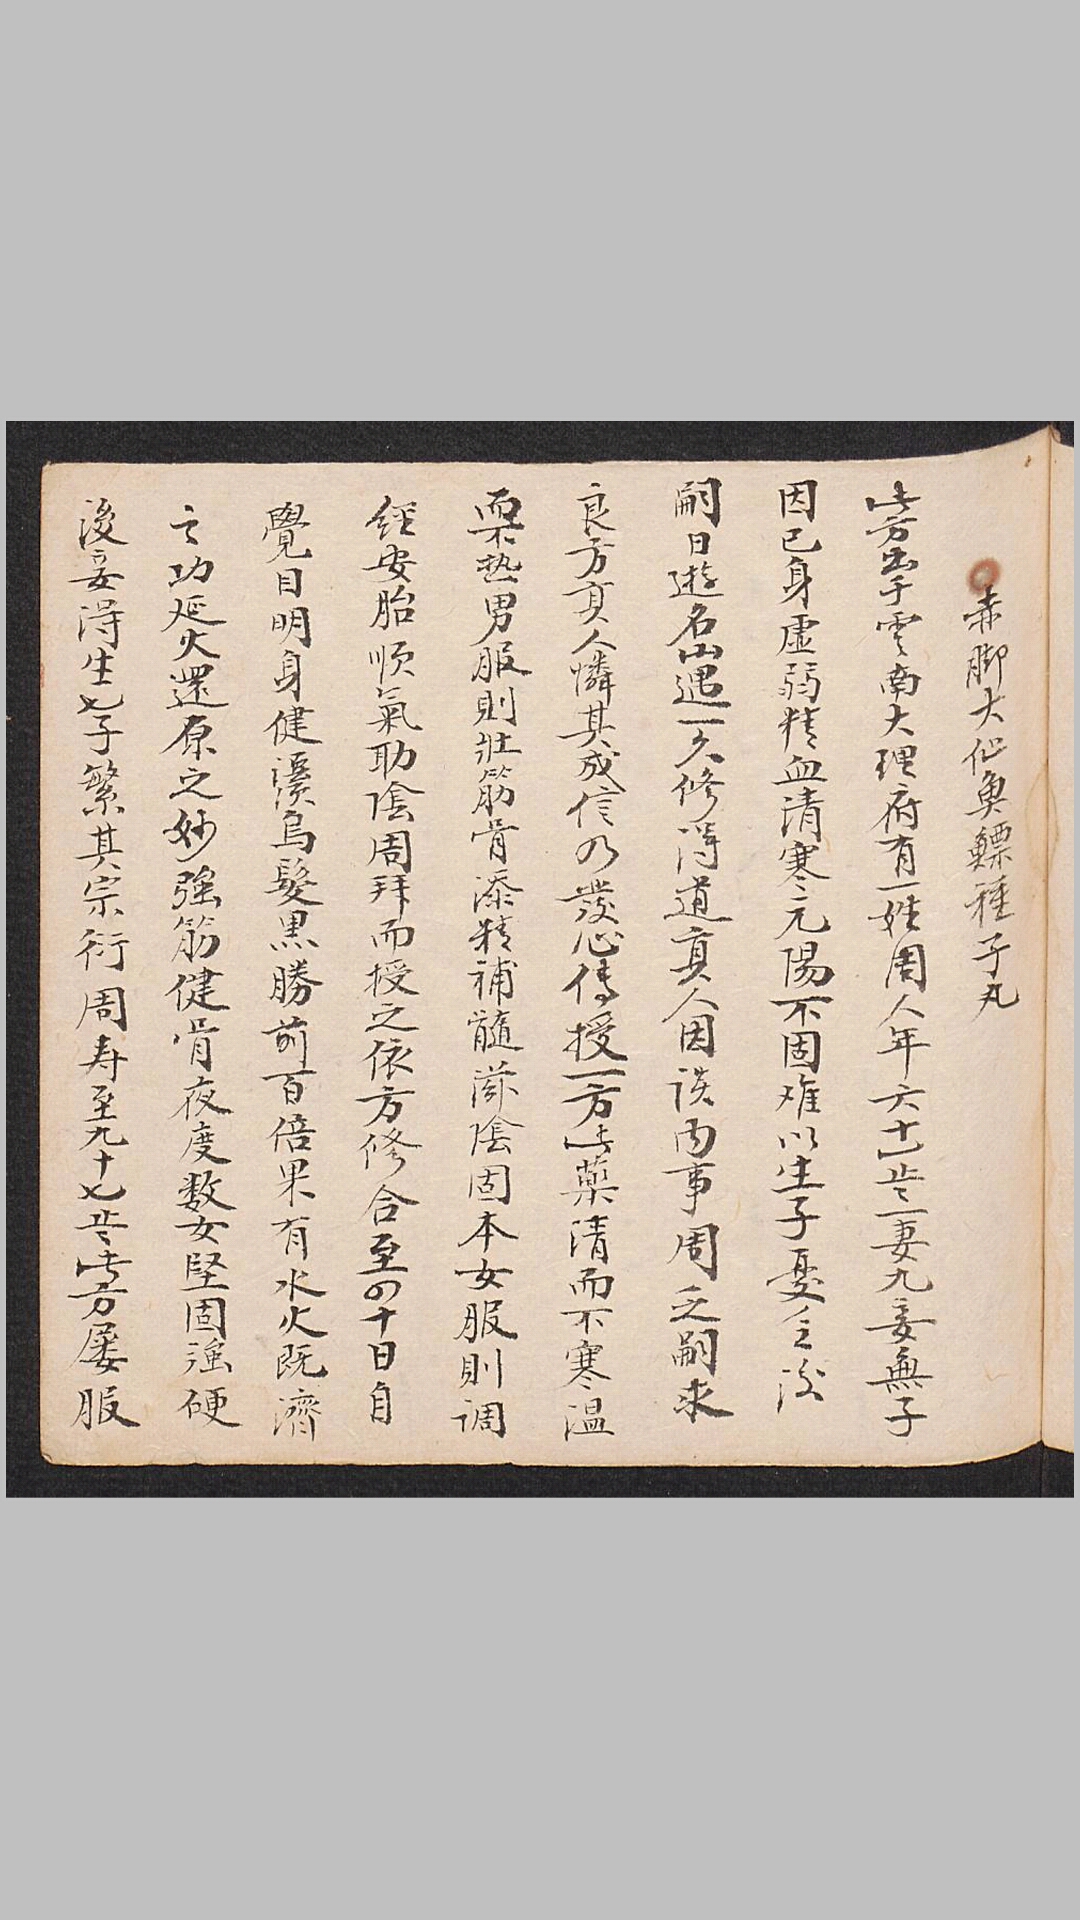 赤脚大仙魚鰾種子丸
此方出乎雲南大理府有一姓周人年六十一岁一妻九妾無子
因已身虚弱精血清寒元陽不固难以生子憂之後
嗣日遊名山遇一久修得道真人因谈内事周乏嗣求
良方真人憐其成信乃發心傳授一方此藥清而不寒温
而不热男服則壯筋骨添精補髓滋陰固本女服則调
經安胎順氣助陰周拜而授之依方修合至四十日自
覺目明身健鬚烏髮黒勝前百倍果有水火既濟
之功延火還原之妙強筋健骨夜度数女堅固強硬
後妾得生七子繁其宗衍周寿至九十七岁此方屡服